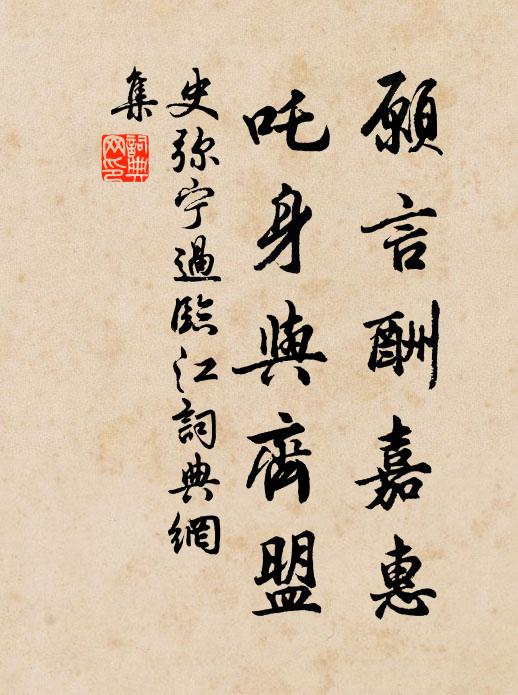 願言酬嘉惠
吒身與齊盟
史弥宁過臨江詞典網
集
詞典
网印